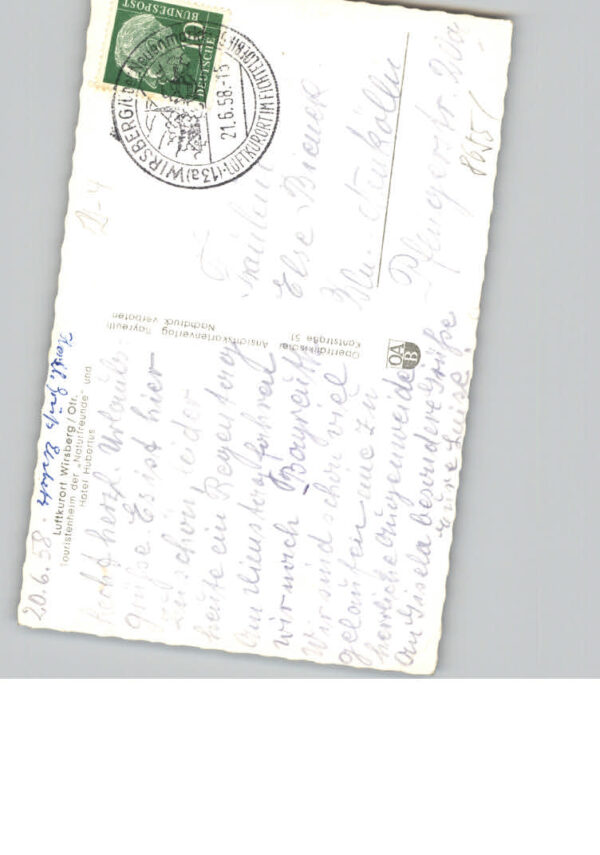 20.6.58
Herzl. Grüße
Luftkurort Wirsberg/Ofr.
Touristenheim der „Naturfreunde" und
Hotel Hubertus
Recht herzl. Urlaubs-
grüße. Es ist hier
sehr schön, leider
heute ein Regentag
Am Dienstag fahren
wir nach Bayreuth
Wir sind schon viel
gelaufen und zu
herrliche Augenweide
An Gisela besondere Grüße
Luise
Oberfränkischer Ansichtskartenverlag Bayreuth
Kantstraße 51
Nachdruck verboten
OA
B
DEUTSCHE
BUNDESPOST
10
(13a) WIRSBERG
21.6.58-15
LUFTKURORT IM FICHTELGEBIRGE
Fräulein
Else Bienek
Bln. Neukölln
Pflügerstr.